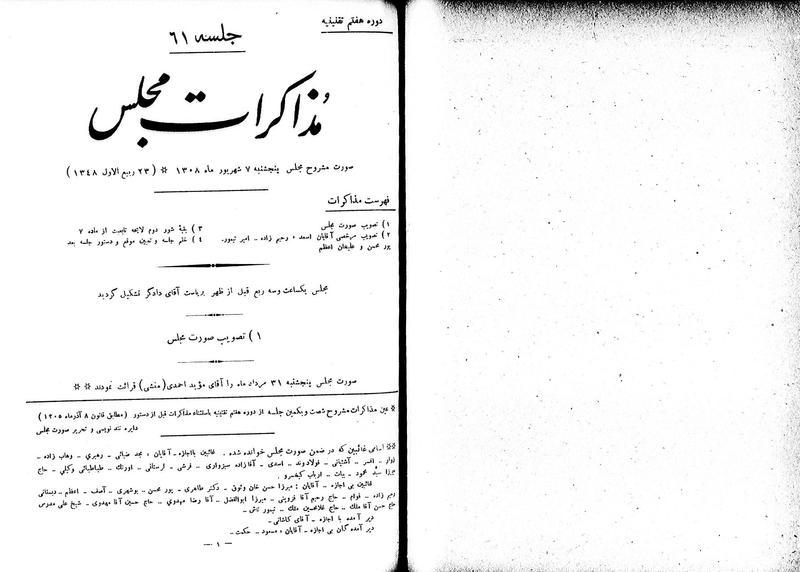 دوره هفتم تقنینیه
جلسه ۶۱
مذاکرات مجلس
صورت مشروح مجلس پنجشنبه ۷ شهریور ماه ۱۳۰۸ ※ (۲۳ ربیع الاول ۱۳۴۸)
فهرست مذاکرات
۱) تصویب صورت مجلس
۲) تصویب مرخصی آقایان اسعد ، رحیم زاده ـ امیر تیمور.
پور محسن و علیخان اعظم
۳) بقیهٔ شور دوم لایحه تابعیت از ماده ۷
۴) ختم جلسه و تعیین موقع و دستور جلسه بعد
مجلس یکساعت وسه ربع قبل از ظهر بریاست آقای دادگر تشکیل گردید
۱) تصویب صورت مجلس
صورت مجلس پنجشنبه ۳۱ مرداد ماه را آقای مؤید احمدی (منشی) قرائت نمودند ※※
※ عین مذاکرات مشروح شصت ویکمین جلسه از دوره هفتم تقنینیه باستثناء مذاکرات قبل از دستور (مطابق قانون ۸ آذرماه ۱۳۰۵)
دایره تند نویسی و تحریر صورت مجلس
※※ اسامی غائبین که در ضمن صورت مجلس خوانده شده . غائبین بااجازه ـ آقایان ، مجد ضیائی ـ رهبری ـ وهاب زاده ـ
زوار ـ افسر ـ آشتیانی ـ فولادوند ـ اسدی ـ آقازاده سبزواری ـ فرشی ـ لرستانی ـ اورنگ ـ طباطبائی وکیلی ـ حاج
میرزا سید محمود ـ بیات ـ ارباب کیخسرو .
غائبین بی اجازه ـ آقایان : میرزا حسن خان وثوق ـ دکتر طاهری ـ پور محسن ـ بوشهری ـ آصف ـ اعظم ـ دبستانی
رحیم زاده ـ قوام ـ حاج رحیم آقا قزوینی ـ میرزا ابوالفضل ـ آقا رضا مهدوی ـ حاج حسین آقا مهدوی ـ شیخ علی مدرس
حاج حسن آقا ملک ـ حاج غلامحسین ملک ـ تیمور تاش ـ
دیر آمده با اجازه ـ آقای کاشانی ـ
دیر آمده گان بی اجازه ـ آقایان ، مسعود ـ حکمت ـ
— ۱ —